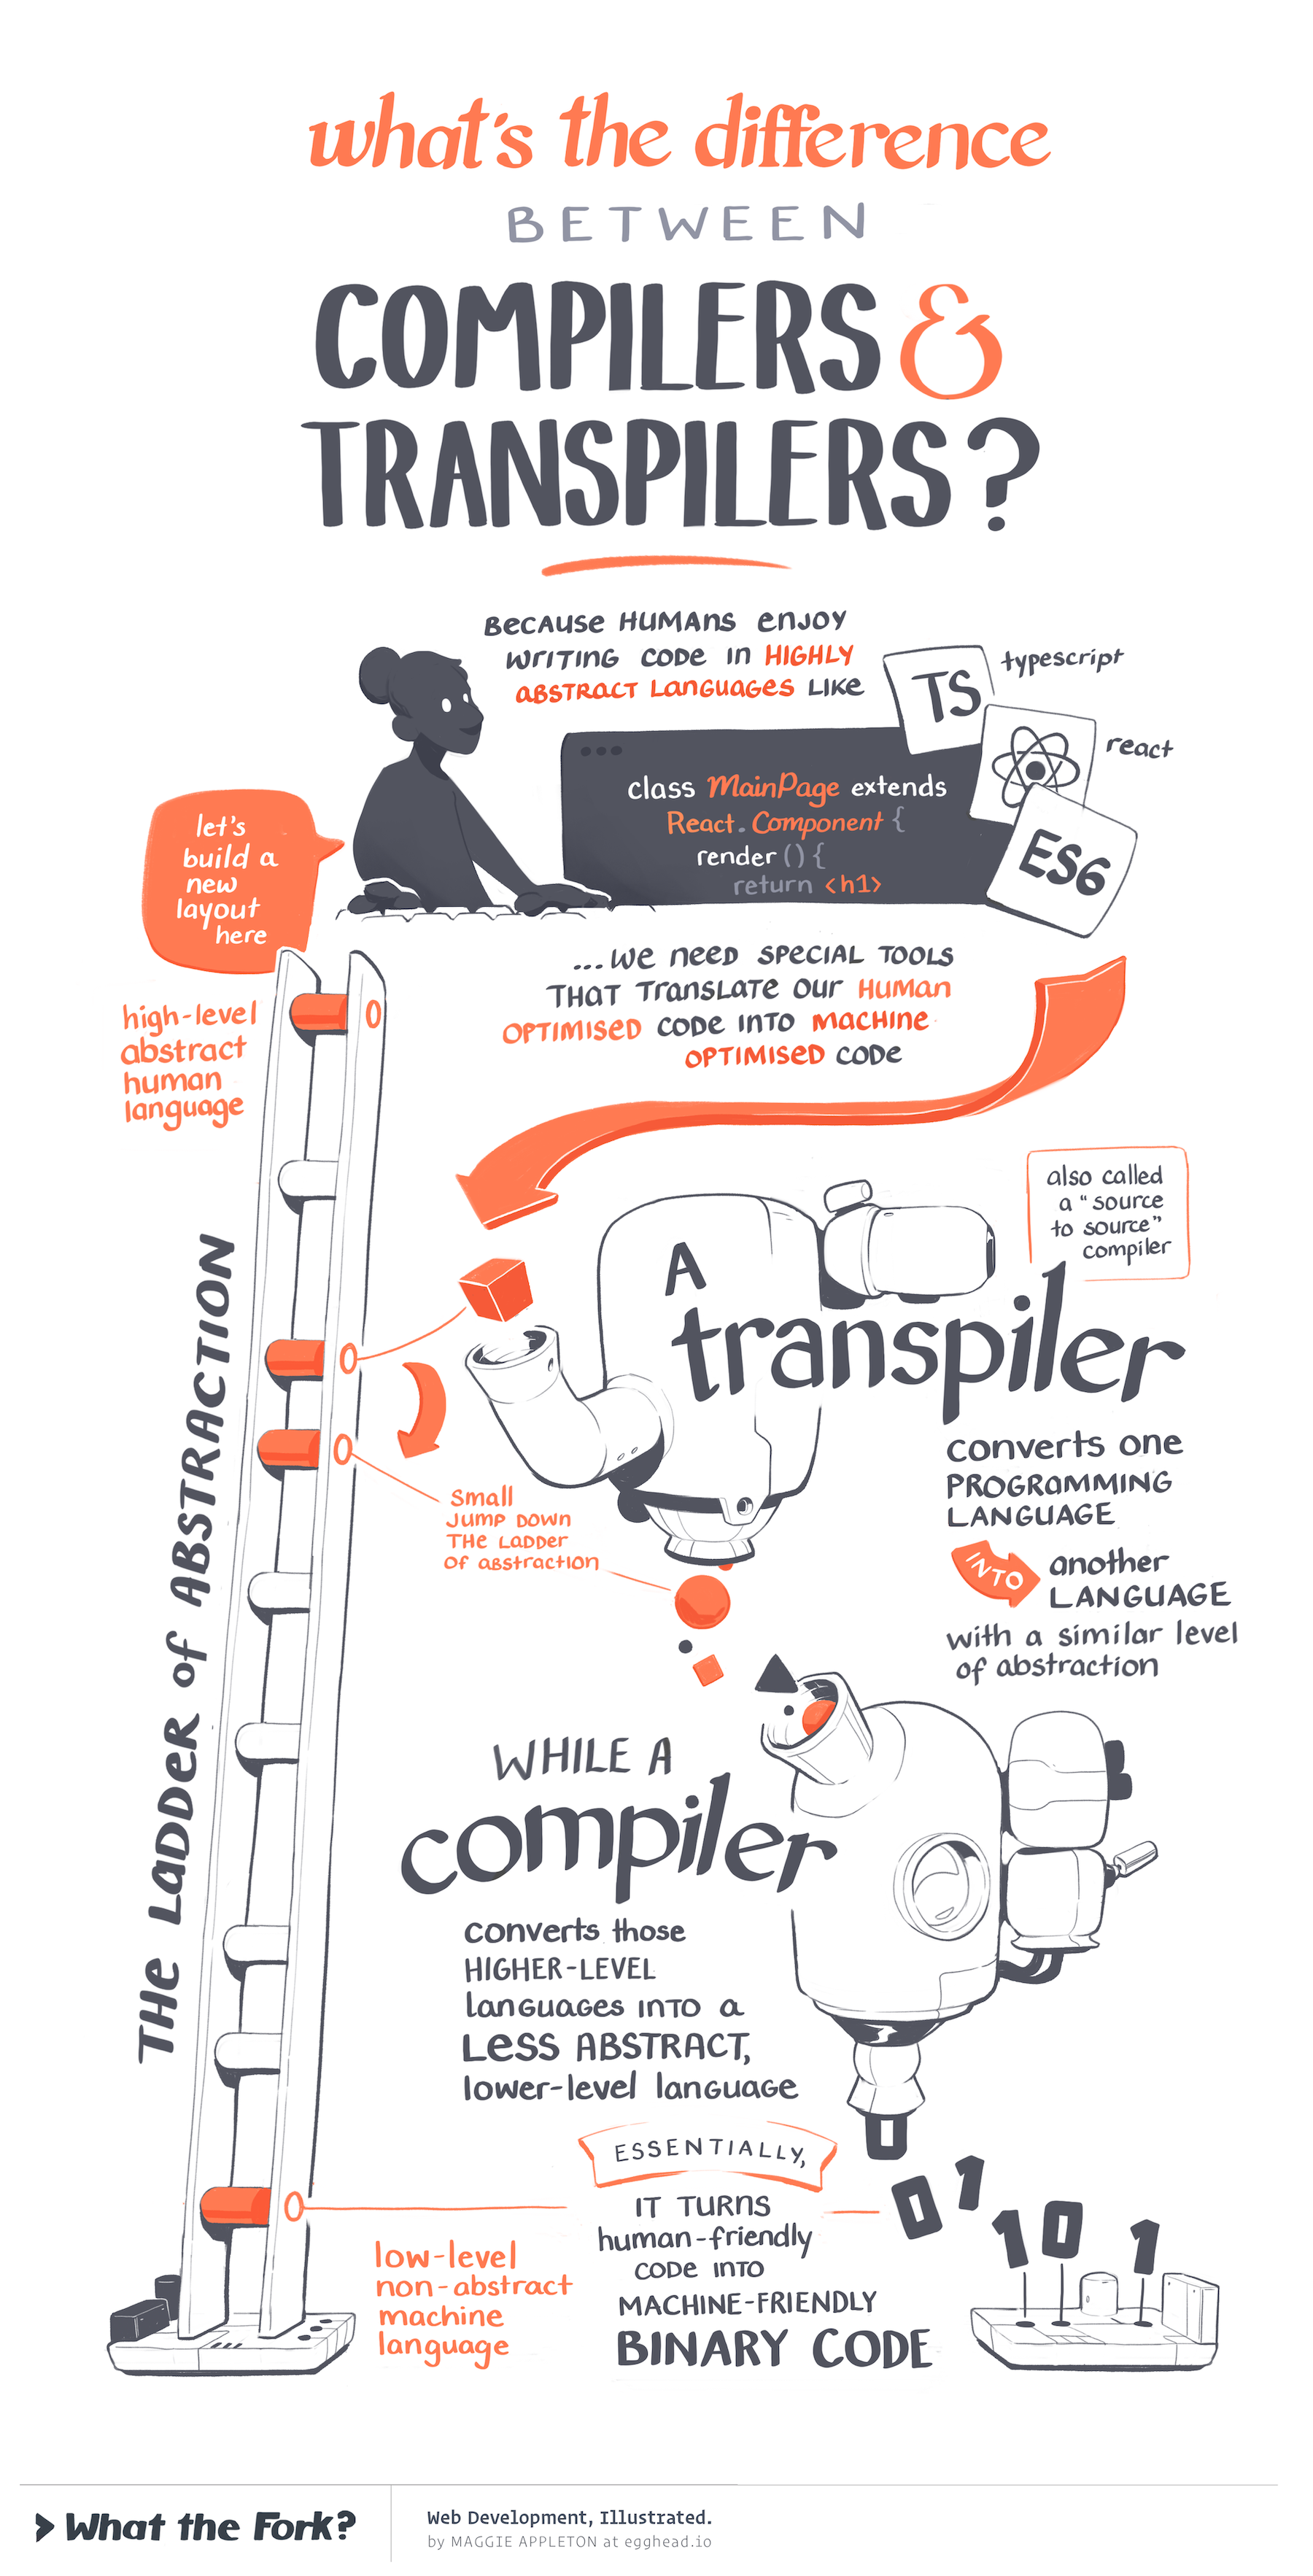 what's the difference
BETWEEN
COMPILERS &
TRANSPILERS?
BECAUSE HUMANS ENJOY
WRITING CODE IN HIGHLY
ABSTRACT LANGUAGES LIKE
TS
typescript
react
ES6
class MainPage extends
React.Component {
render () {
return <h1>
let's
build a
new
layout
here
...WE NEED SPECIAL TOOLS
THAT TRANSLATE OUR HUMAN
OPTIMISED CODE INTO MACHINE
OPTIMISED CODE
high-level
abstract
human
language
THE LADDER of ABSTRACTION
also called
a "source
to source"
compiler
A
transpiler
converts one
PROGRAMMING
LANGUAGE
INTO
another
LANGUAGE
with a similar level
of abstraction
Small
JUMP DOWN
THE LADDER
OF ABSTRACTION
WHILE A
compiler
converts those
HIGHER-LEVEL
languages INTO a
Less ABSTRACT,
lower-level language
ESSENTIALLY,
IT TURNS
human-friendly
CODE INTO
MACHINE-FRIENDLY
BINARY CODE
0
0 1
1 0 1
low-level
non-abstract
machine
language
What the Fork?
Web Development, Illustrated.
by MAGGIE APPLETON at egghead.io